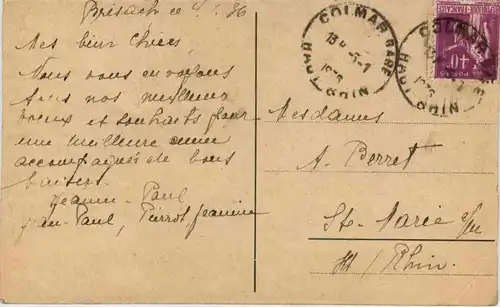 Brisach ce 36
Mes bien Chères,
Nous vous envoyons
tous nos meilleurs
voeux et souhaits pour
une meilleure année
accompagnés de bons
baisers.
Jeanne-Paul
Jean-Paul, Pierrot Jeanine
COLMAR GARE
13
1936
HAUT RHIN
COLMAR GARE
HAUT RHIN
POSTES
40c
Mesdames
A. Perret
Ste-Marie a/m
Ht/Rhin.